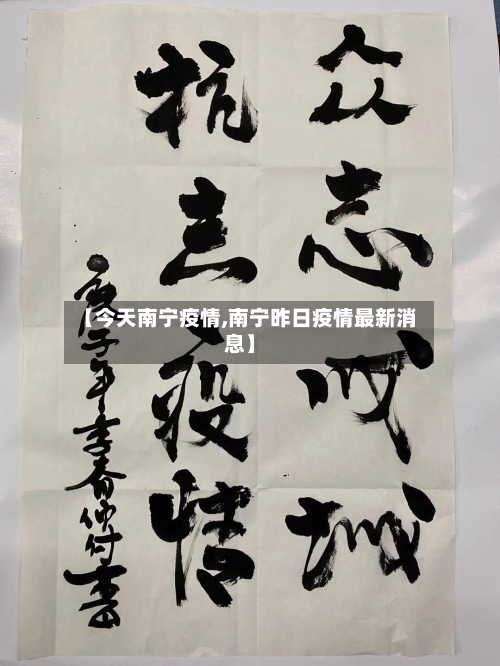 众志成城
抗击疫情
庚子年春书
【今天南宁疫情,南宁昨日疫情最新消
息】